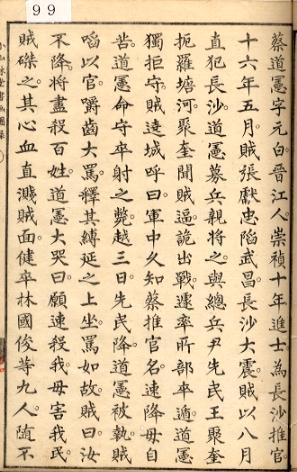 99
蔡道憲。字元白。晉江人。崇禎十年進士。為長沙推官。
十六年五月。賊張獻忠陷武昌。長沙大震。賊以八月
直犯長沙。道憲募兵親將之。與總兵尹先民王聚奎
扼羅塘河。聚奎聞賊逼。詭出戰。遽率所部卒遁。道憲
獨拒守。賊遶城呼曰。軍中久知蔡推官名。速降毋自
苦。道憲命守卒射之斃。越三日。先民降。道憲被執。賊
啗以官。嚼齒大罵。釋其縛。延之上坐。罵如故。賊曰。汝
不降。將盡殺百姓。道憲大哭曰。願速殺我。毋害我民。
賊磔之。其心血直濺賊面。健卒林國俊等九人。隨不